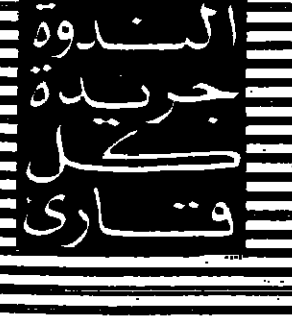 الندوة
جريدة
كل
قارئ